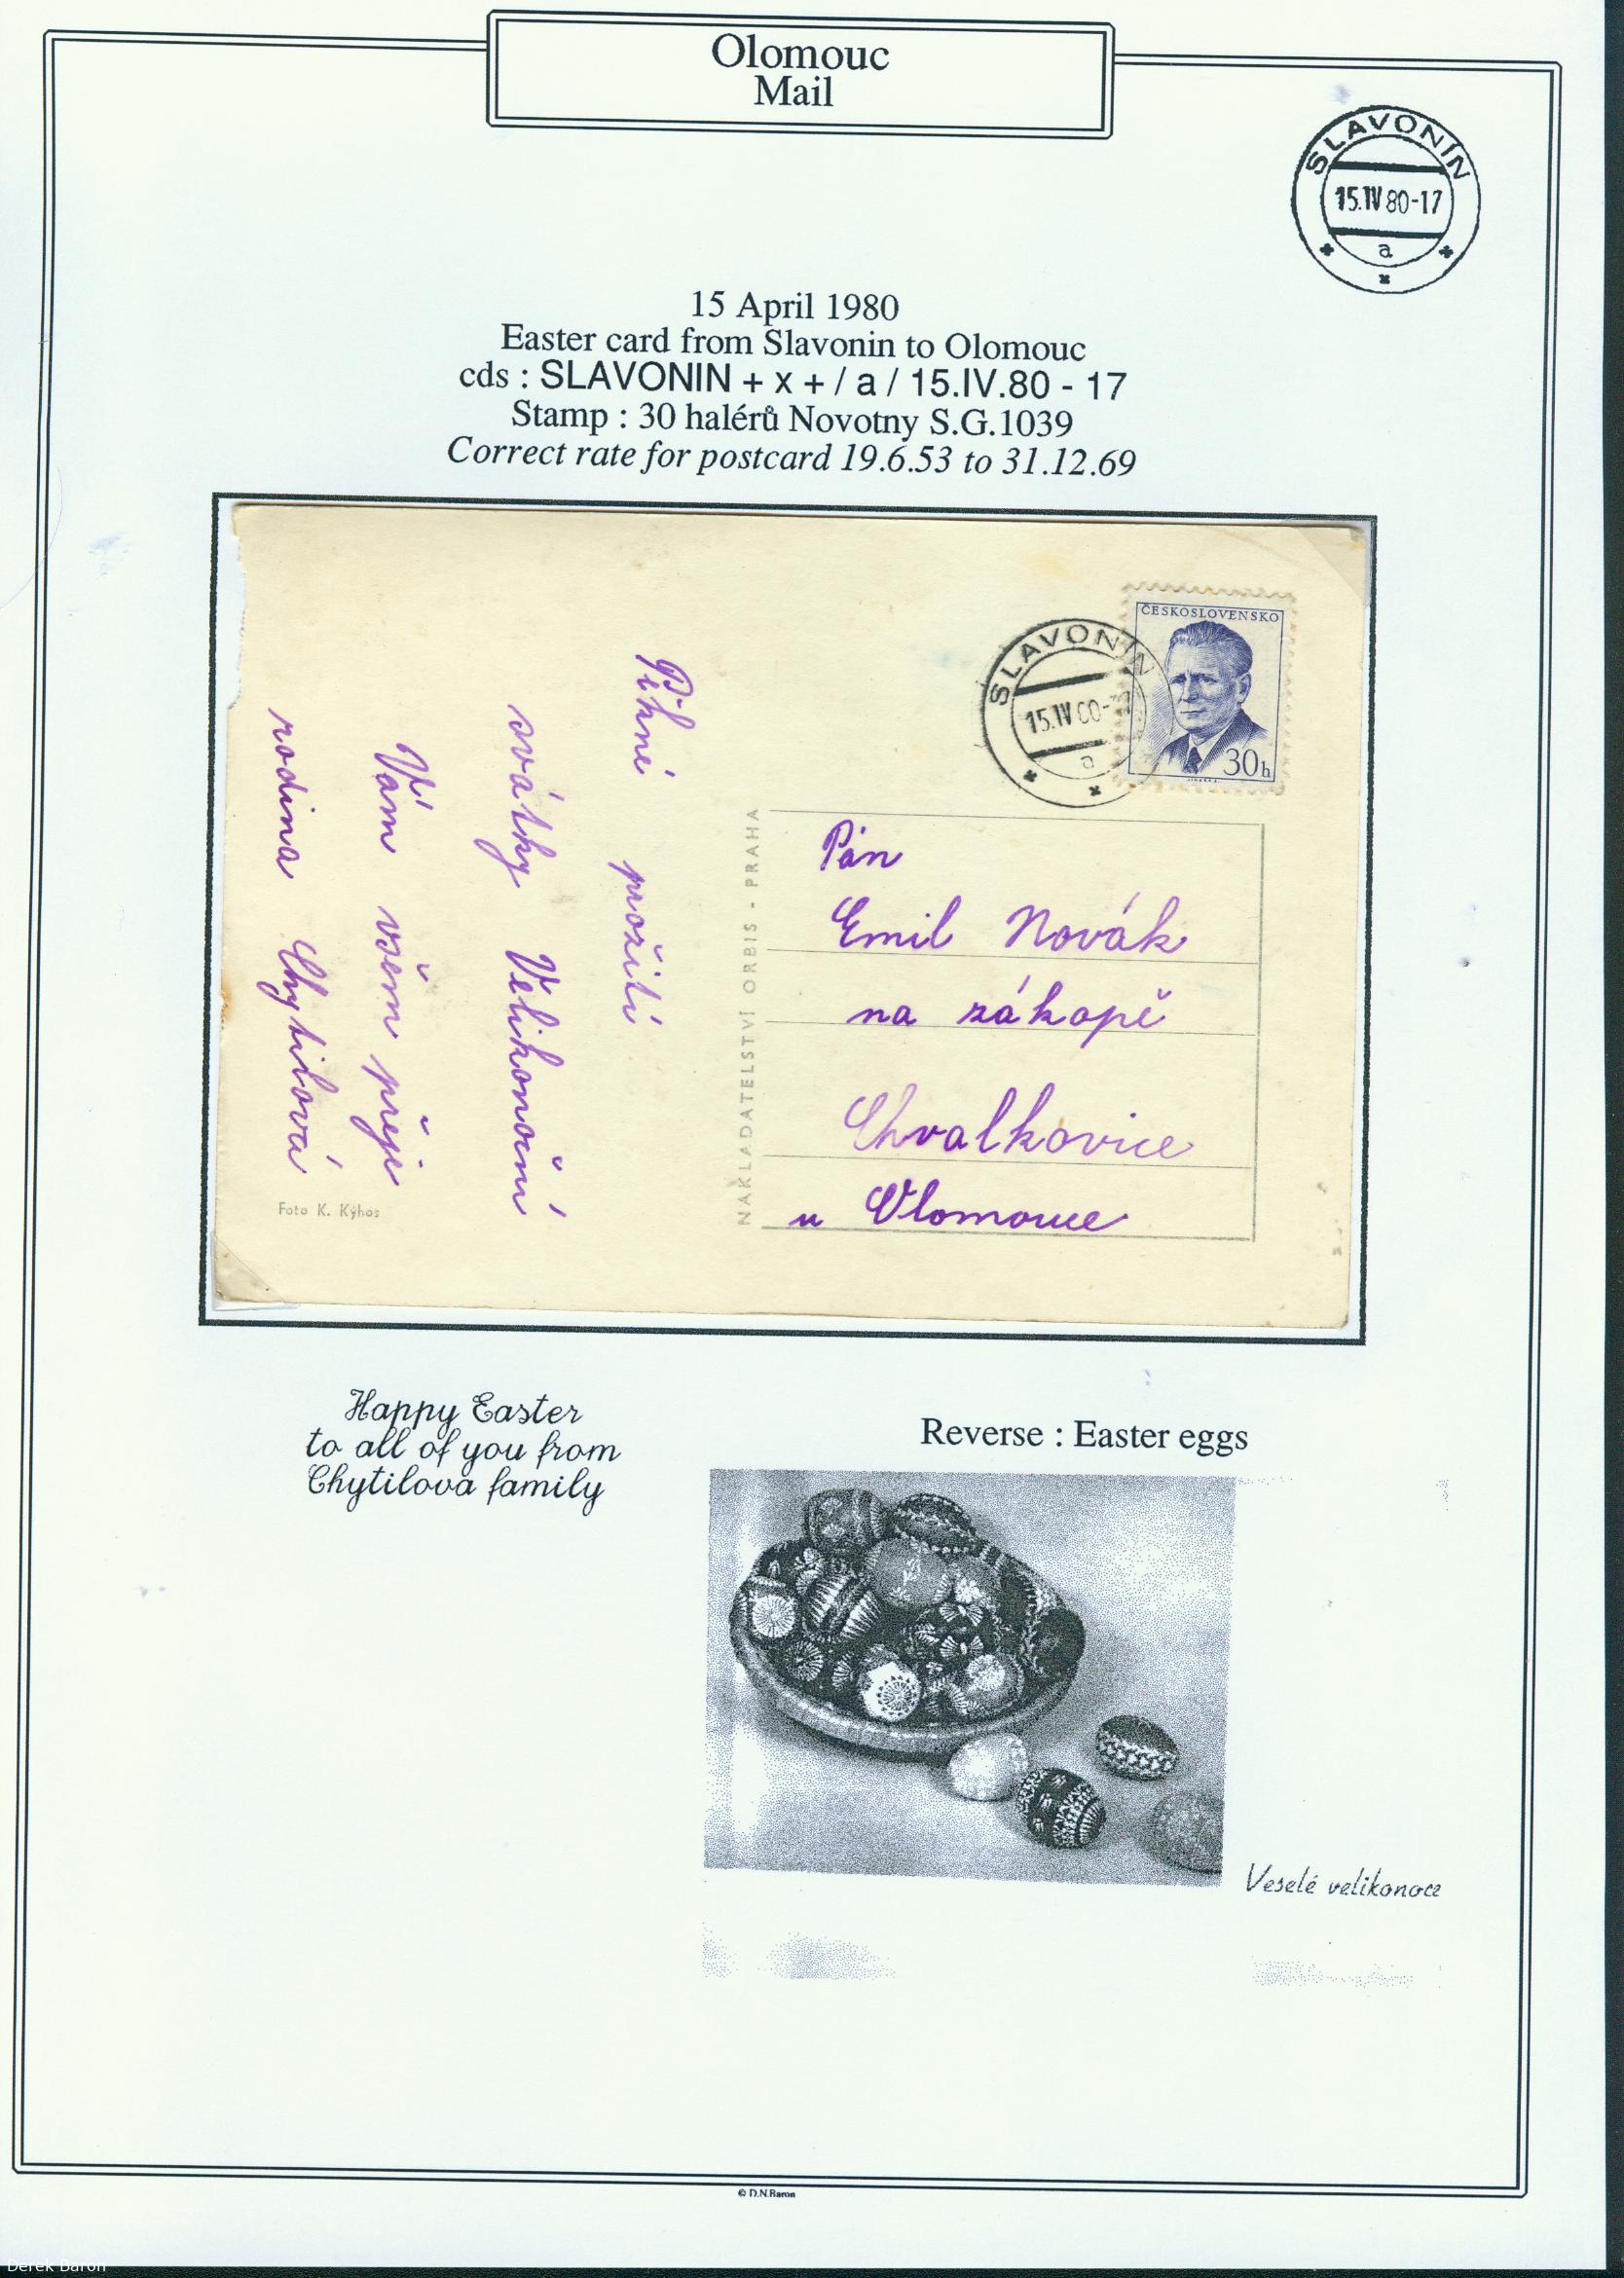 Olomouc
Mail
SLAVONÍN
15.IV 80-17
a
15 April 1980
Easter card from Slavonin to Olomouc
cds : SLAVONIN + x + / a / 15.IV.80 - 17
Stamp : 30 halérů Novotny S.G.1039
Correct rate for postcard 19.6.53 to 31.12.69
ČESKOSLOVENSKO
30h
SLAVONÍN
15.IV
a
Pěkné prožití
svátky Velikonoční
Vám všem přeje
rodina Chytilová
Foto K. Kýhos
NAKLADATELSTVÍ ORBIS - PRAHA
Pán
Emil Novák
na zákopě
Chvalkovice
u Olomouce
Happy Easter
to all of you from
Chytilova family
Reverse : Easter eggs
Veselé velikonoce
© D.N.Baron
Derek Baron